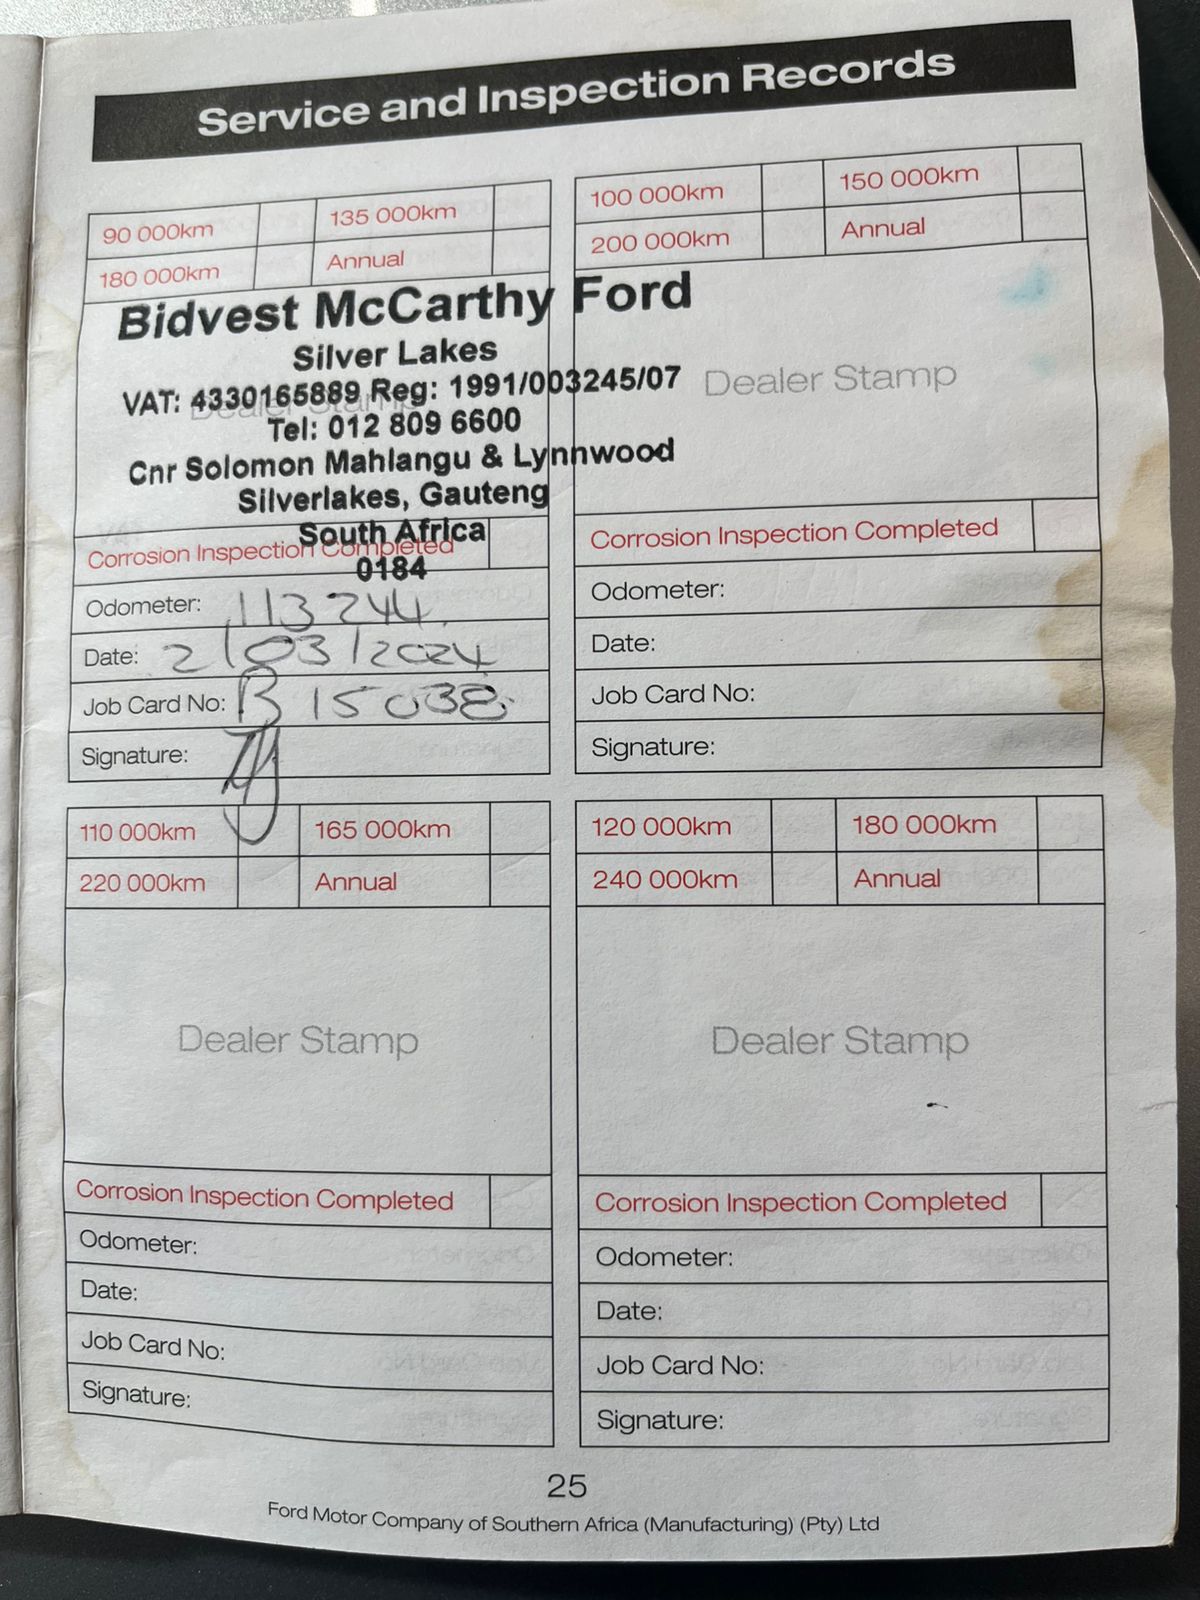 Service and Inspection Records
90 000km 135 000km
180 000km Annual
Bidvest McCarthy Ford
Silver Lakes
VAT: 4330165889 Reg: 1991/003245/07
Dealer Stamp
Tel: 012 809 6600
Cnr Solomon Mahlangu & Lynnwood
Silverlakes, Gauteng
South Africa
Corrosion Inspection Completed
0184
Odometer: 113 244
Date: 2/03/2024
Job Card No: B 15038
Signature:
100 000km 150 000km
200 000km Annual
Dealer Stamp
Corrosion Inspection Completed
Odometer:
Date:
Job Card No:
Signature:
110 000km 165 000km
220 000km Annual
Dealer Stamp
Corrosion Inspection Completed
Odometer:
Date:
Job Card No:
Signature:
120 000km 180 000km
240 000km Annual
Dealer Stamp
Corrosion Inspection Completed
Odometer:
Date:
Job Card No:
Signature:
25
Ford Motor Company of Southern Africa (Manufacturing) (Pty) Ltd